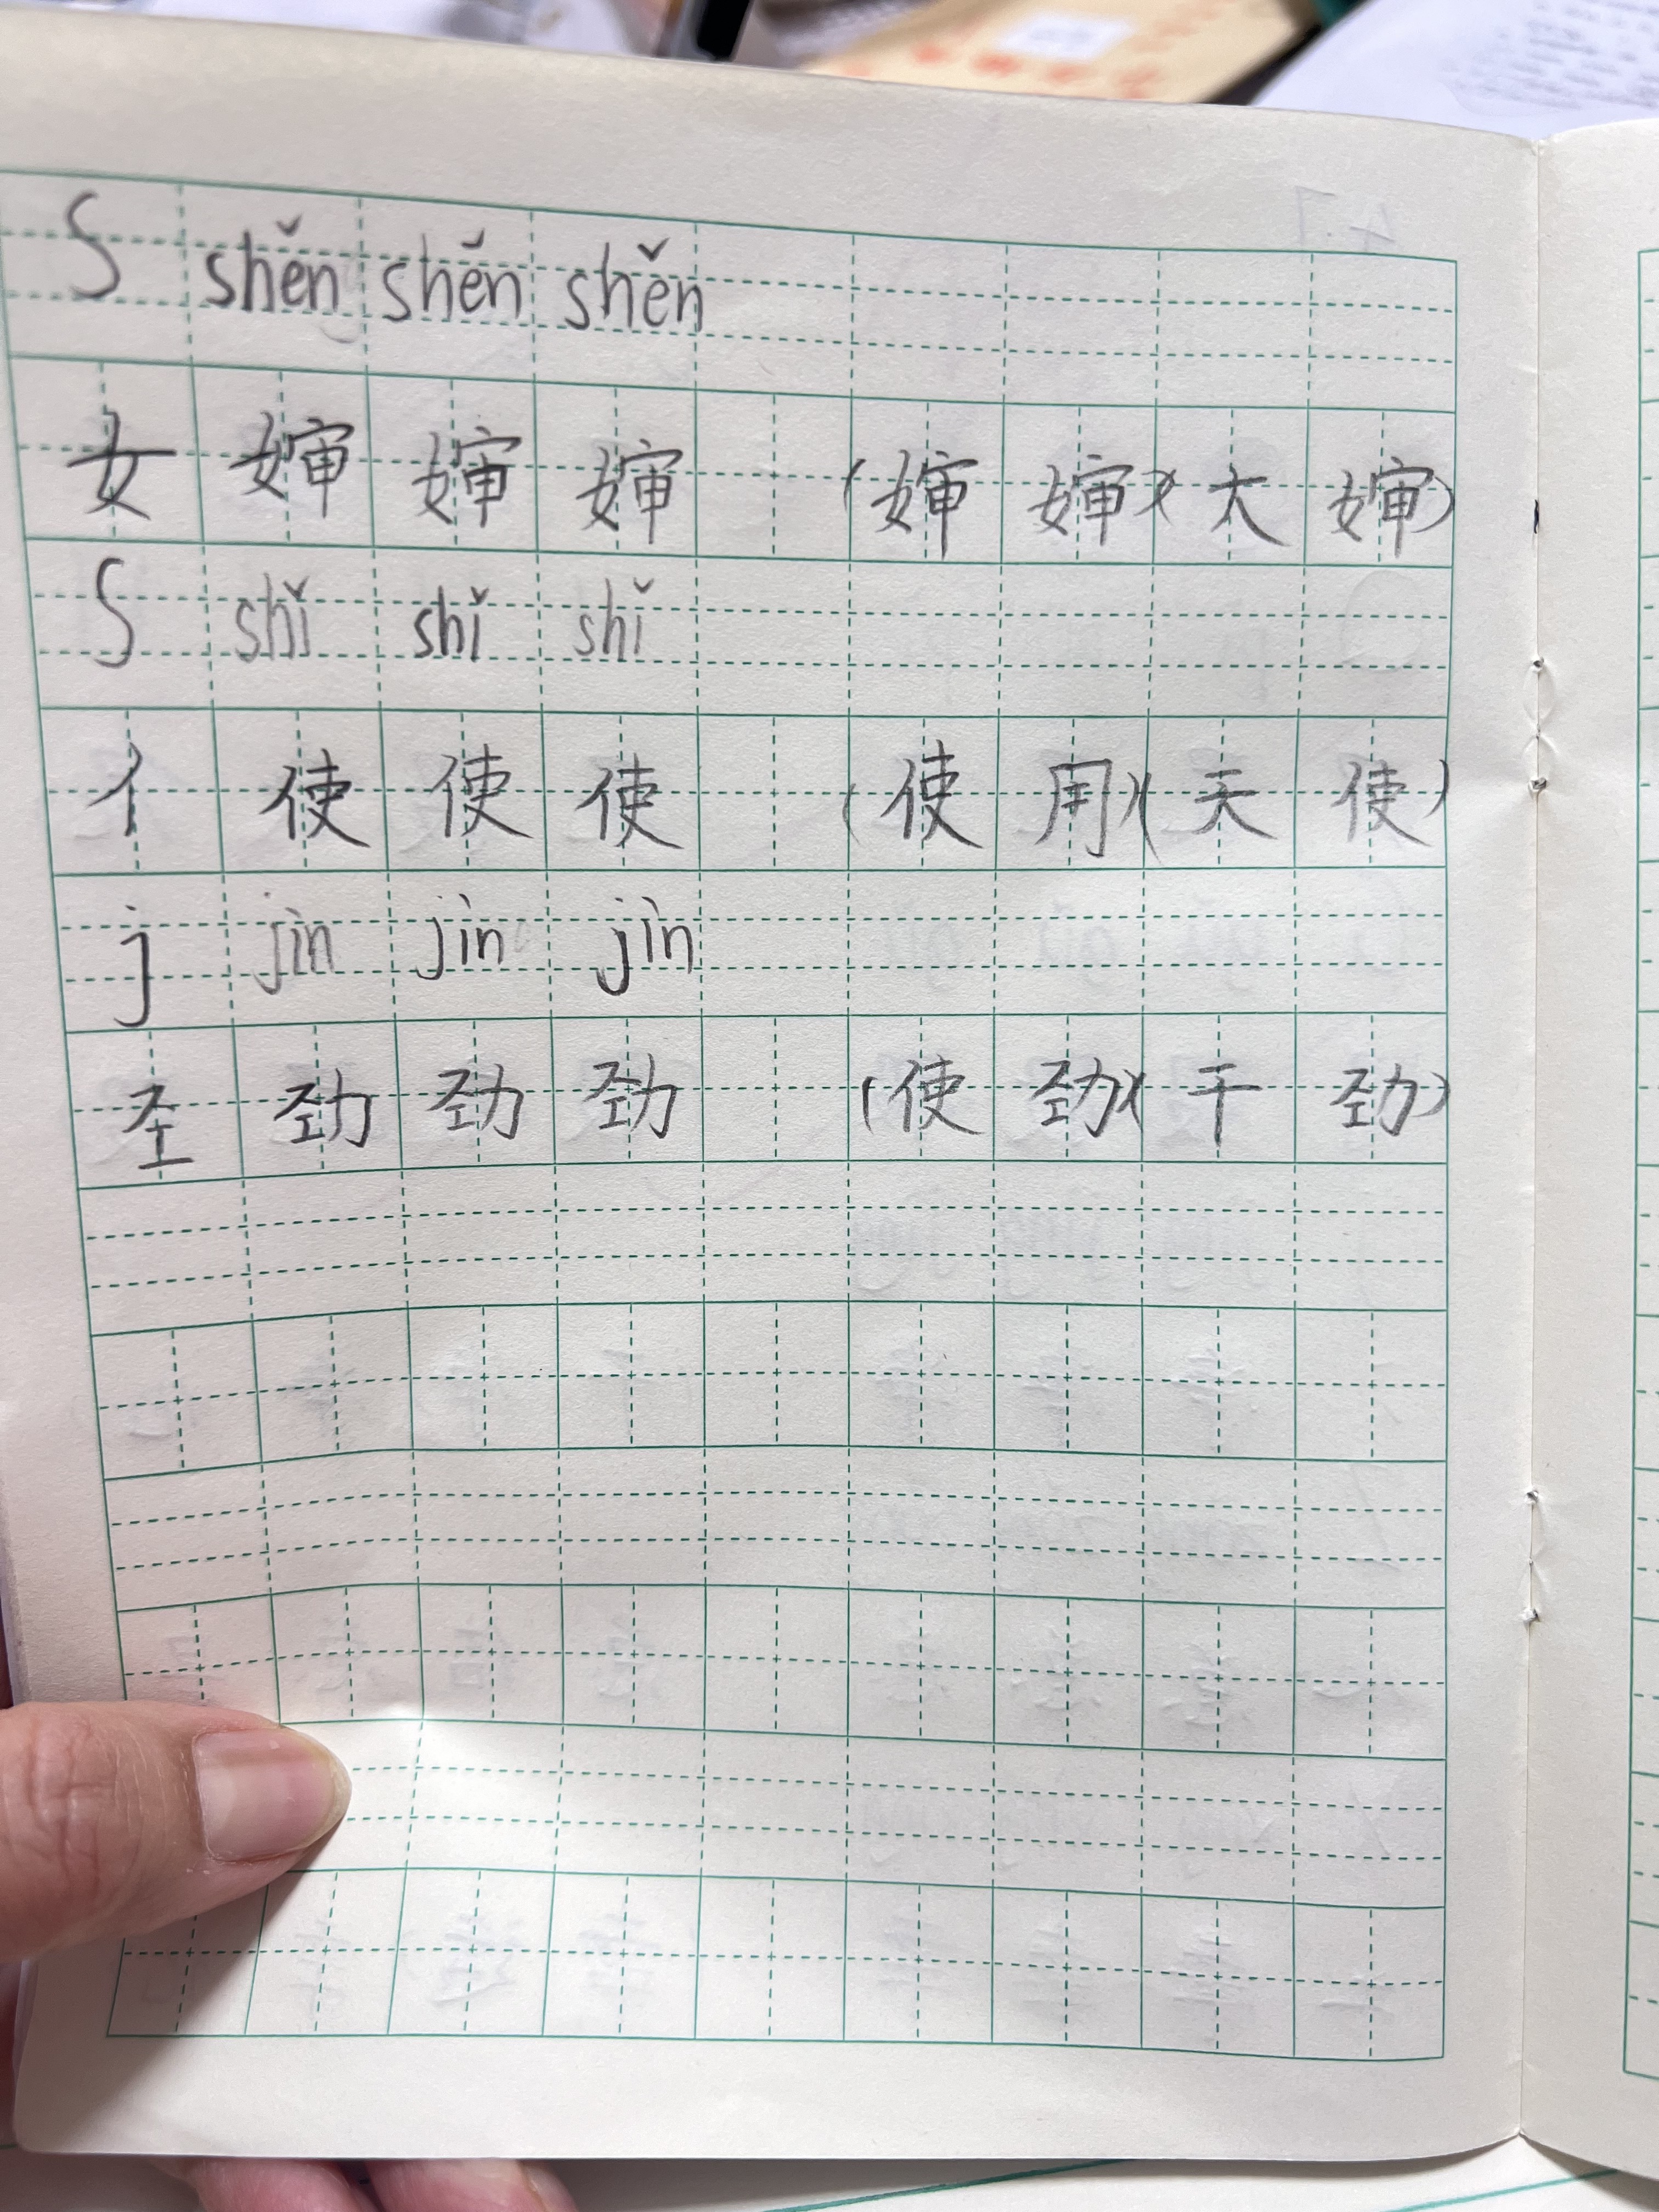 S shěn shěn shěn
女 婶 婶 婶 (婶 婶)(大 婶)
S shǐ shǐ shǐ
亻 使 使 使 (使 用)(天 使)
j jìn jìn jìn
𢀖 劲 劲 劲 (使 劲)(干 劲)